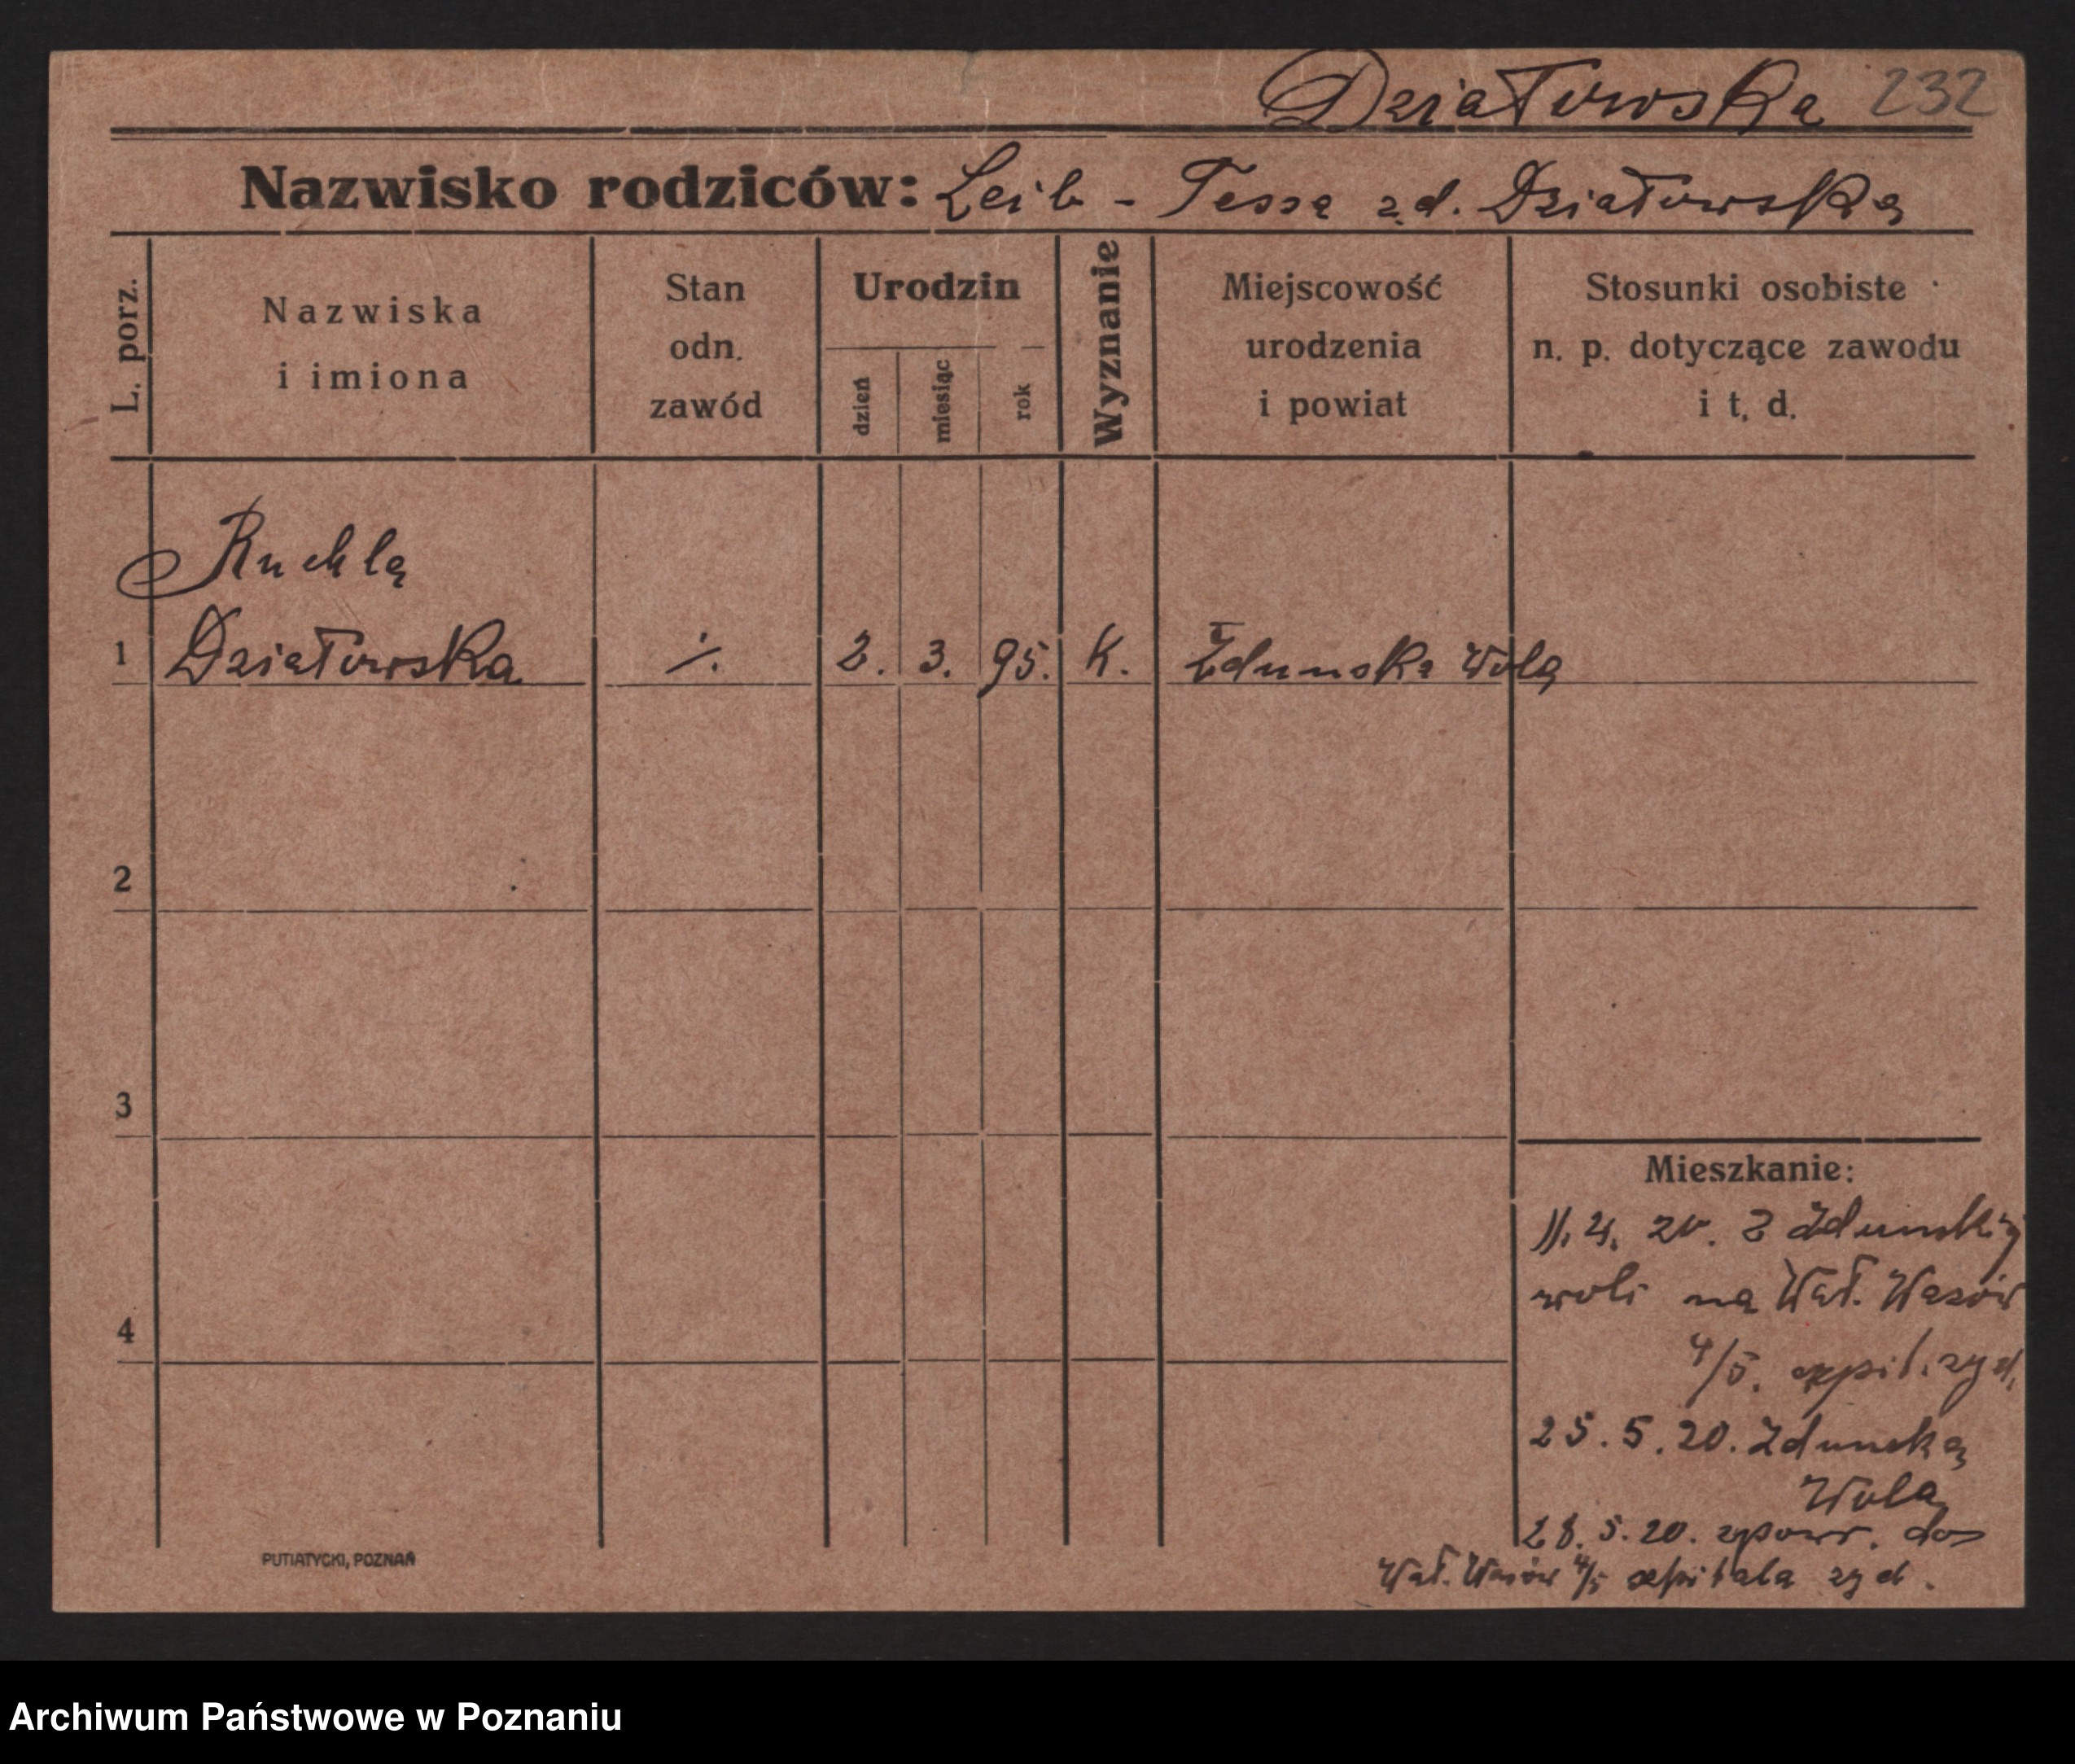 Działowska 232
Nazwisko rodziców: Leib - Tessa zd. Działowska
L. porz.
Nazwiska
i imiona
Stan
odn.
zawód
Urodzin
dzień
miesiąc
rok
Wyznanie
Miejscowość
urodzenia
i powiat
Stosunki osobiste
n. p. dotyczące zawodu
i t. d.
Ruchla
1 Działowska ./. 2. 3. 95. K. Zdunska Wola
2
3
4
Mieszkanie:
11. 4. 20. z Zdunskiej
woli na Wał. Wazów
4/5. szpit. zyd.
25. 5. 20. Zdunska
Wola
28. 5. 20. zpowr. do
Wał. Wazów 4/5 szpitala zyd.
PUTIATYCKI, POZNAŃ
Archiwum Państwowe w Poznaniu